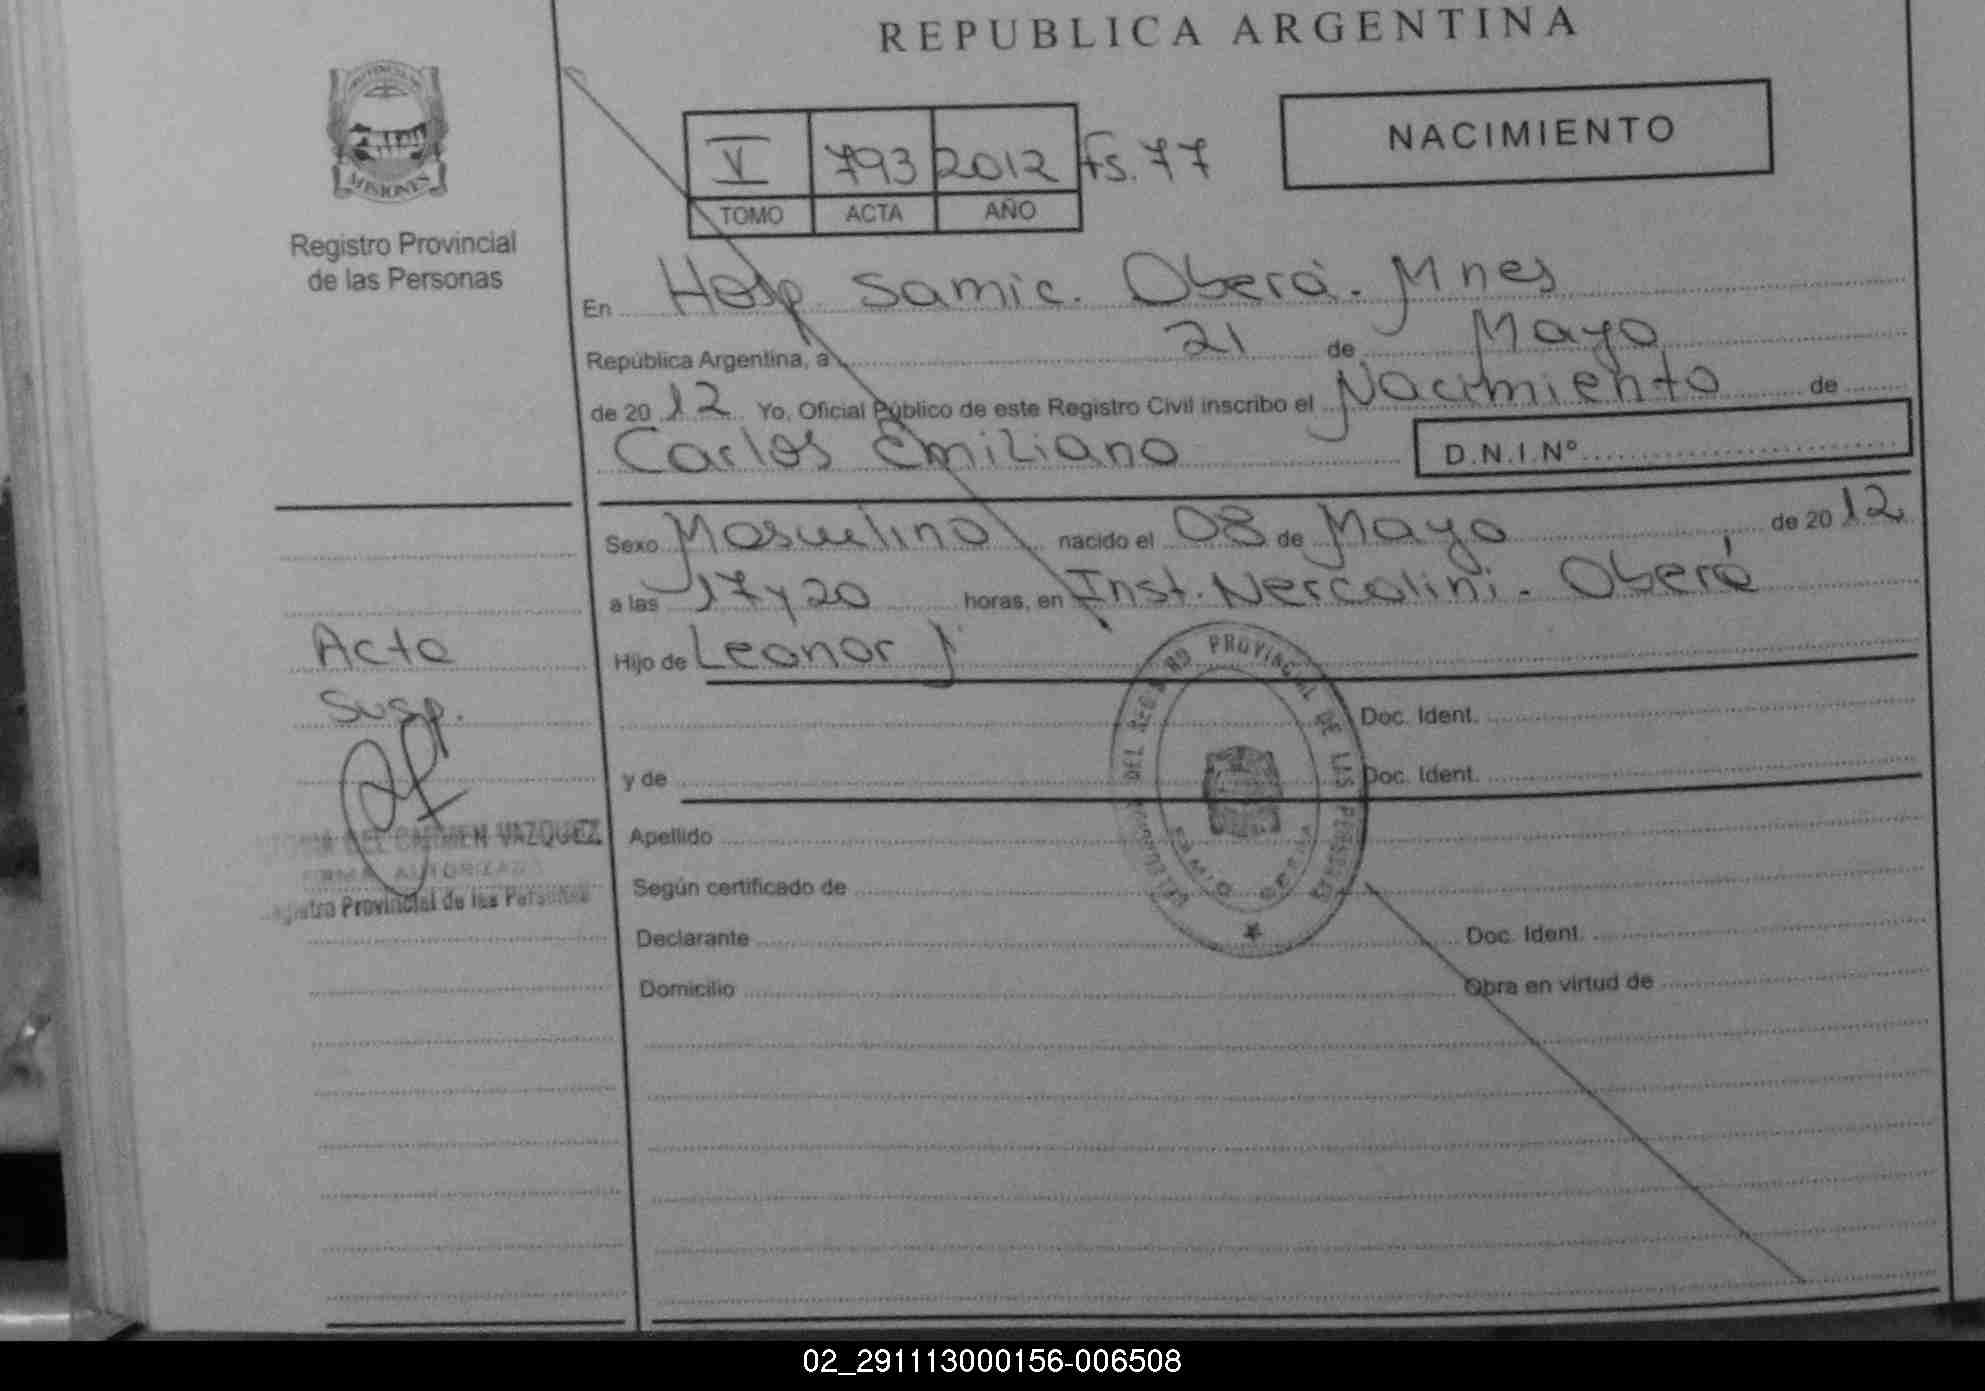 REPUBLICA ARGENTINA
PROVINCIA DE
MISIONES
Registro Provincial
de las Personas
V 793 2012 Fs. 77
TOMO ACTA AÑO
NACIMIENTO
En Hosp. Samic. Oberá. Mnes
República Argentina, a 21 de Mayo
de 2012 Yo, Oficial Público de este Registro Civil inscribo el Nacimiento de
Carlos Emiliano
D.N.I.Nº
Sexo Masculino nacido el 08 de Mayo de 2012
a las 17 y 20 horas, en Inst. Nercolini. Oberá
Hijo de Leonor J
Doc. Ident.
y de Doc. Ident.
Apellido
Según certificado de
Declarante Doc. Ident.
Domicilio Obra en virtud de
Acta
Susp.
DEL CARMEN VAZQUEZ
FIRMA AUTORIZADA
Registro Provincial de las Personas
PROVINCIAL DE LAS PERSONAS
02_291113000156-006508